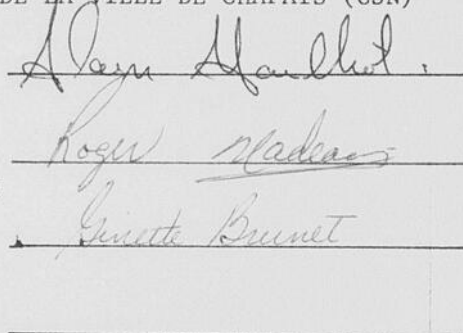 DE LA VILLE DE CHAPAIS (CSN)
Alain Mailhot.
Roger Nadeau
Ginette Brunet